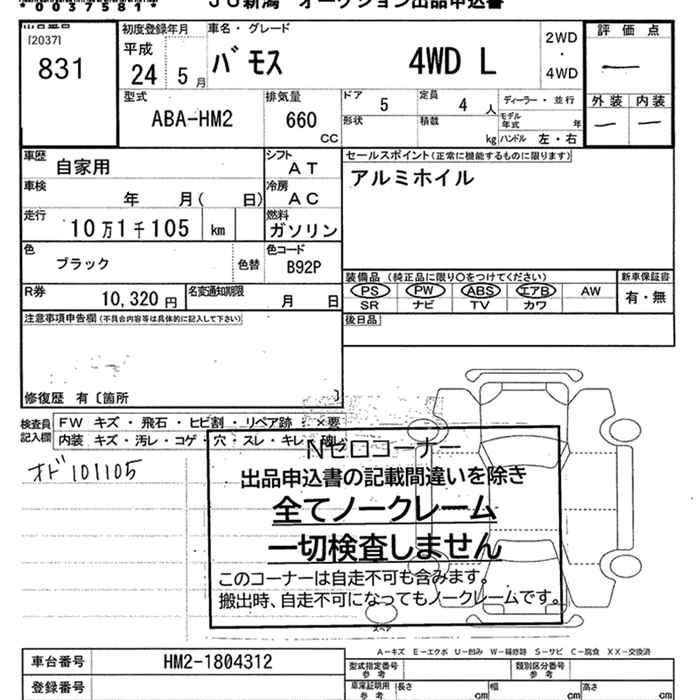 *0037581*
JU新潟 オークション出品申込書
出品番号
[2037]
831
初度登録年月
平成
24 年 5 月
車名・グレード
バモス 4WD L
2WD
・
4WD
評価点
—
外装 内装
— —
型式
ABA-HM2
排気量
660
CC
ドア 5
形状
定員 4 人
積載 kg
ディーラー・並行
モデル年式 年
ハンドル 左・右
車歴 自家用
シフト AT
車検 年 月( 日)
冷房 AC
走行 10万1千105 km
燃料 ガソリン
セールスポイント(正常に機能するものに限ります)
アルミホイル
色 ブラック
色替
色コード
B92P
R券 10,320円
名変通知期限 月 日
装備品(純正品に限り〇をつけてください)
PS PW ABS エアB AW
SR ナビ TV カワ
新車保証書
有・無
後日品
注意事項申告欄(不具合内容等は具体的に記入して下さい)
修復歴 有〔箇所 〕
検査員記入欄
FW キズ・飛石・ヒビ割・リペア跡・×要
内装 キズ・汚レ・コゲ・穴・スレ・キレ・破レ
オド101105
Nゼロコーナー
出品申込書の記載間違いを除き
全てノークレーム
一切検査しません
このコーナーは自走不可も含みます。
搬出時、自走不可になってもノークレームです。
スペア
A-キズ E-エクボ U-凹み W-補修跡 S-サビ C-腐食 XX-交換済
車台番号 HM2-1804312
登録番号
型式指定番号参考
類別区分番号参考
車庫証明用参考
長さ cm 幅 cm 高さ cm